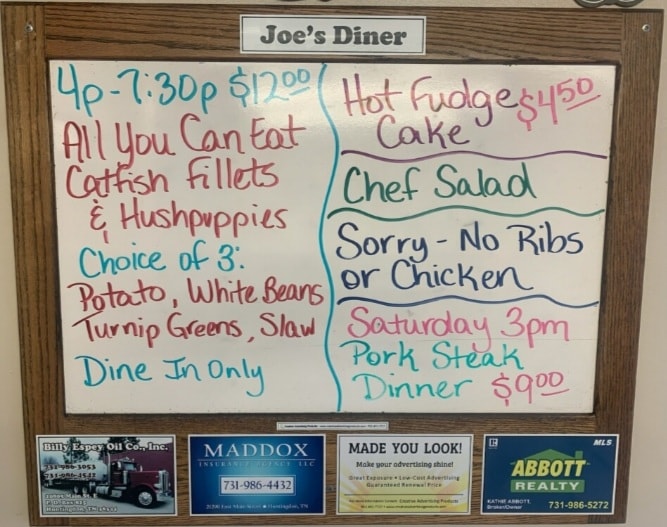 Joe's Diner
4p-7:30p $12.00
All You Can Eat
Catfish Fillets
& Hushpuppies
Choice of 3:
Potato, White Beans
Turnip Greens, Slaw
Dine In Only
Hot Fudge $4.50
Cake
Chef Salad
Sorry - No Ribs
or Chicken
Saturday 3pm
Pork Steak
Dinner $9.00
Billy Espey Oil Co., Inc.
731-986-3053
Huntingdon, TN
MADDOX
INSURANCE AGENCY LLC
731-986-4432
Huntingdon, TN
MADE YOU LOOK!
Make your advertising shine!
Great Exposure • Low-Cost Advertising
Guaranteed Renewal Price
MLS
ABBOTT
REALTY
KATHE ABBOTT,
Broker/Owner
731-986-5272